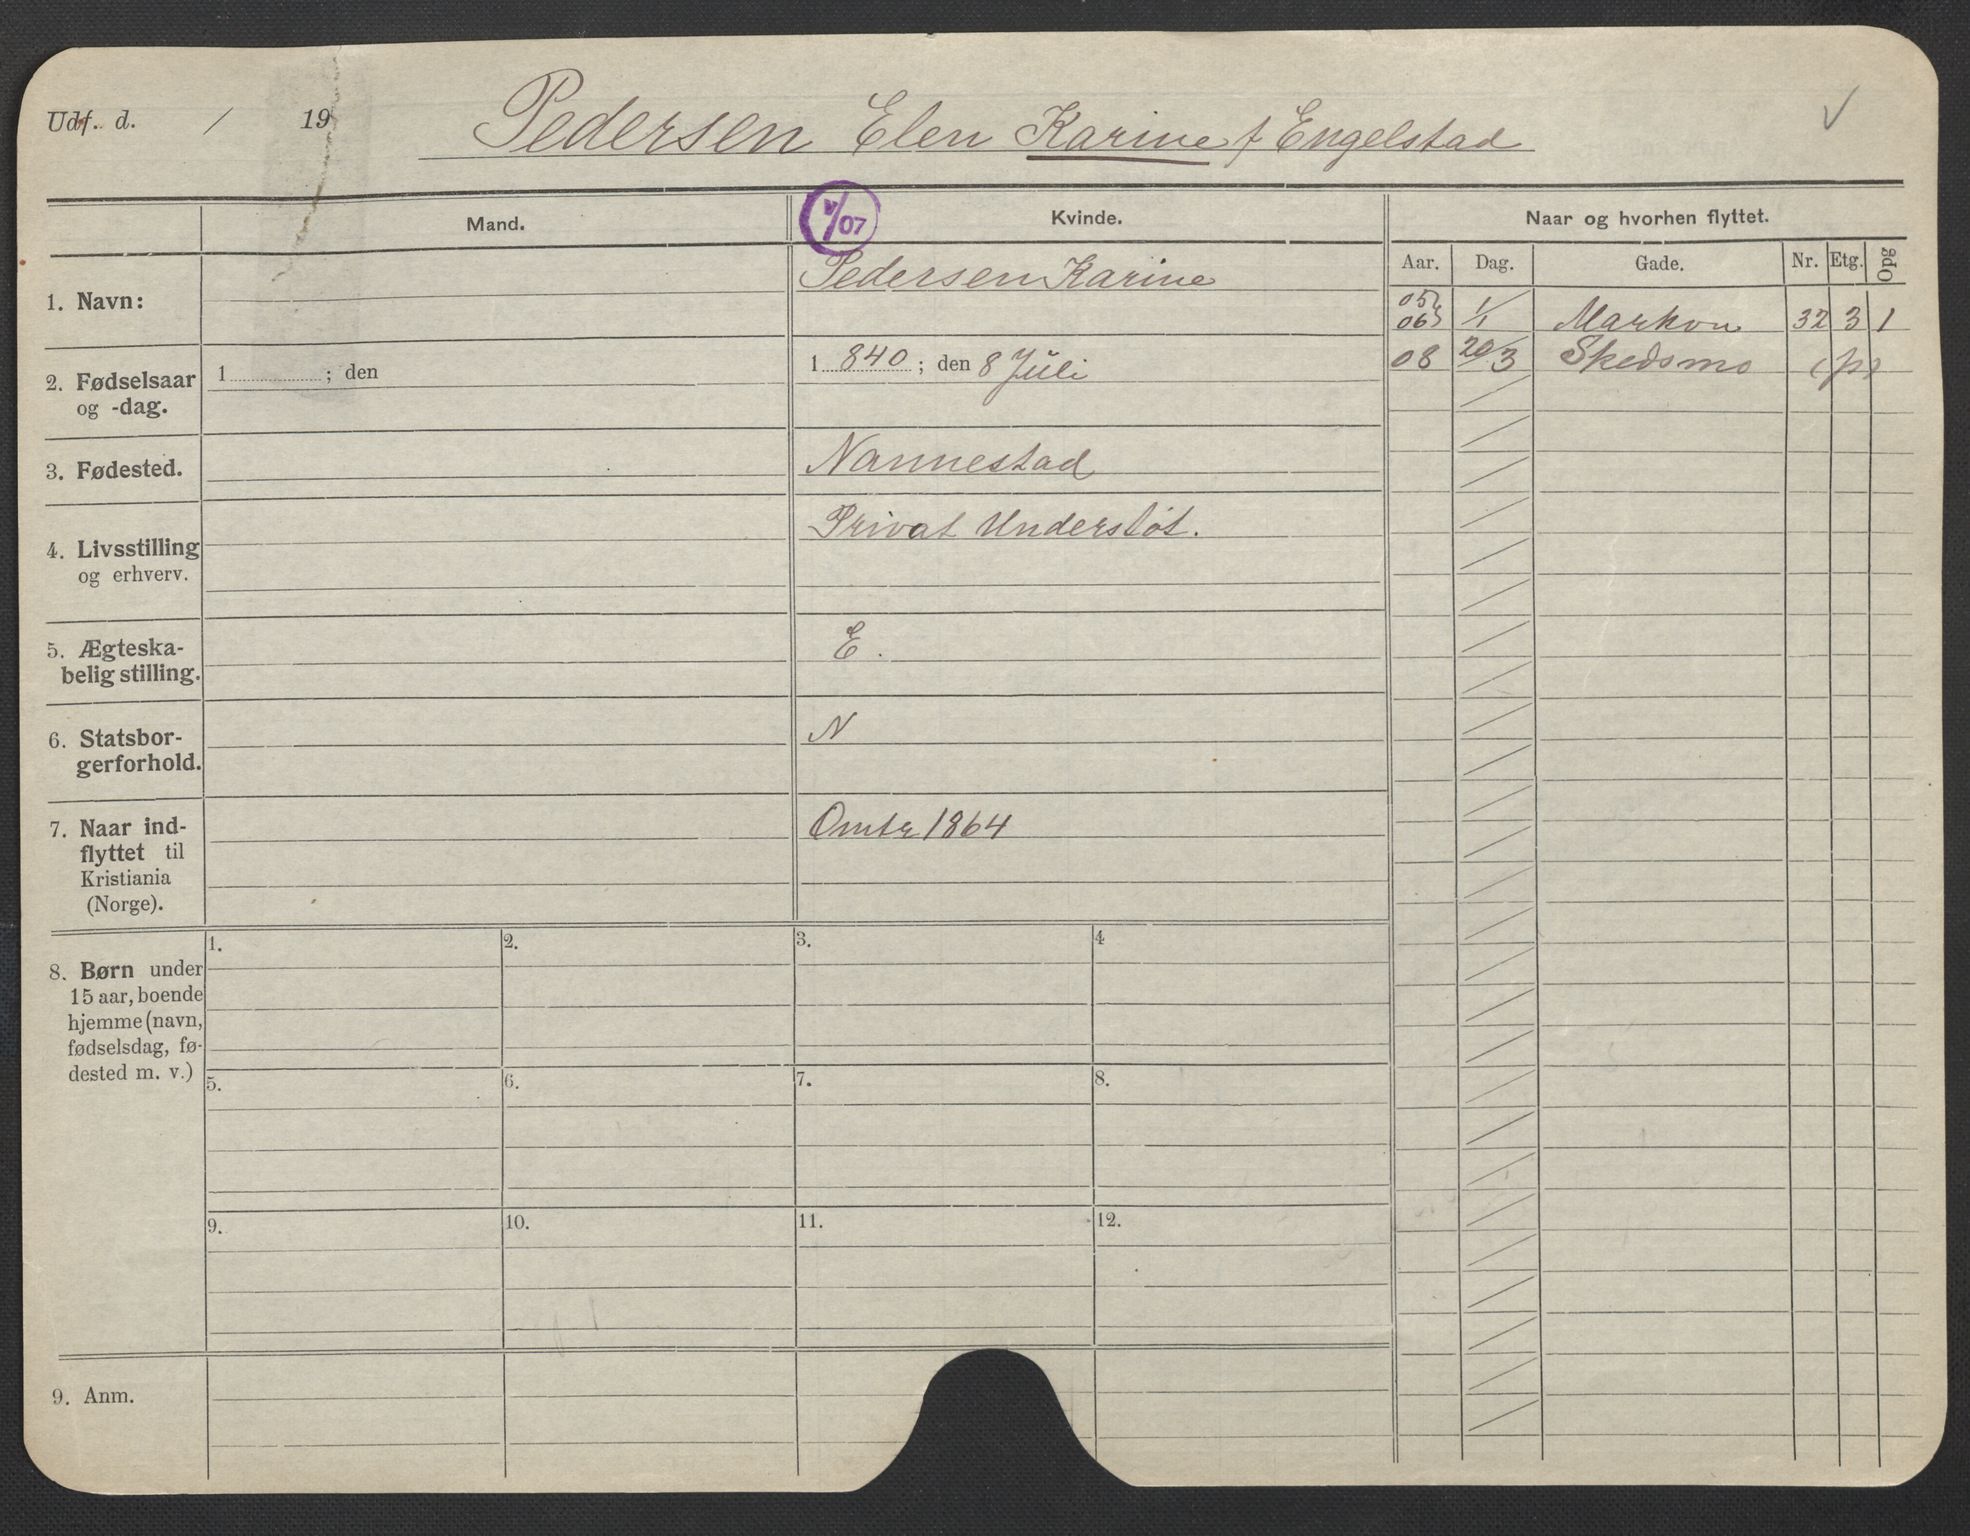 Udf. d. / 19
Pedersen Elen Karine f Engelstad
V/07
Mand.
Kvinde.
Naar og hvorhen flyttet.
Aar. Dag. Gade. Nr. Etg. Opg
1. Navn:
Pedersen Karine
05
06 1/1 Markvn 32 3 1
08 20/3 Skedsmo (p)
2. Fødselsaar
og -dag.
1 ; den
1 840 ; den 8 Juli
3. Fødested.
Nannestad
4. Livsstilling
og erhverv.
Privat Understøt.
5. Ægteska-
belig stilling.
E.
6. Statsbor-
gerforhold.
N
7. Naar ind-
flyttet til
Kristiania
(Norge).
Omtr 1864
8. Børn under
15 aar, boende
hjemme (navn,
fødselsdag, fø-
dested m. v.)
1. 2. 3. 4
5. 6. 7. 8.
9. 10. 11. 12.
9. Anm.